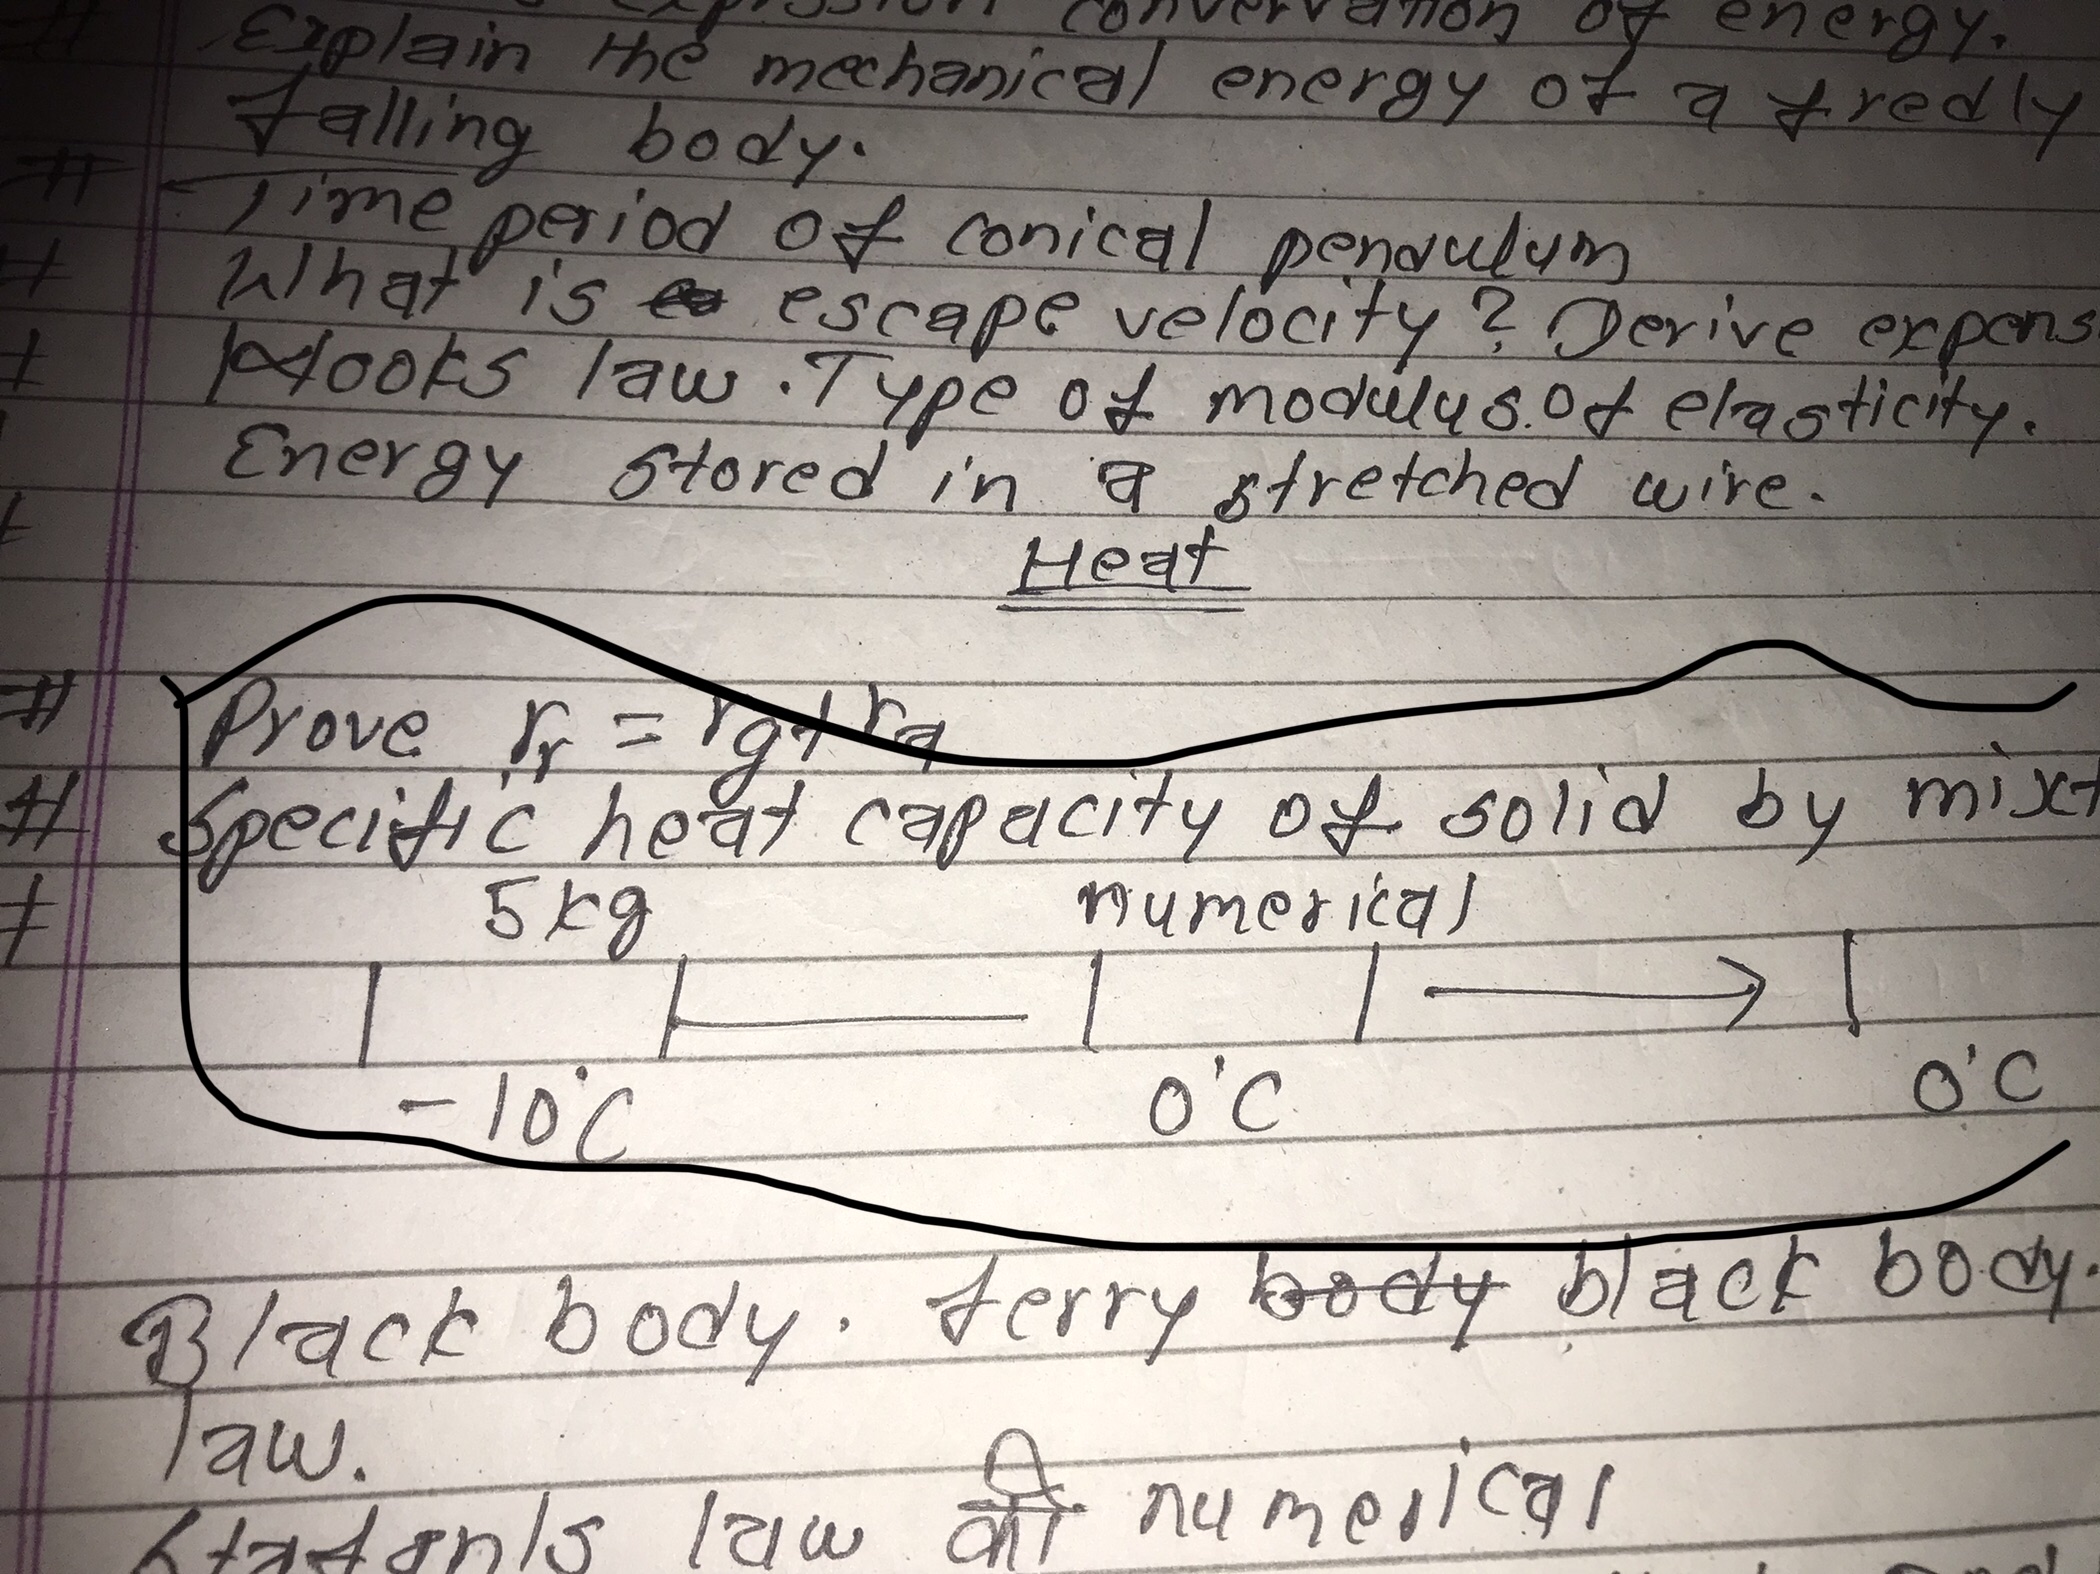 expression convervation of energy.
# Explain the mechanical energy of a fredly
falling body.
# Time period of conical pendulum
# What is escape velocity? Derive expens
# Hooks law. Type of modulus. of elasticity.
Energy stored in a stretched wire.
Heat
# Prove rr = rg + ra
# Specific heat capacity of solid by mixt
# 5 kg numerical
-10°C 0°C 0°C
Black body. ferry body black body.
law.
law की numerical